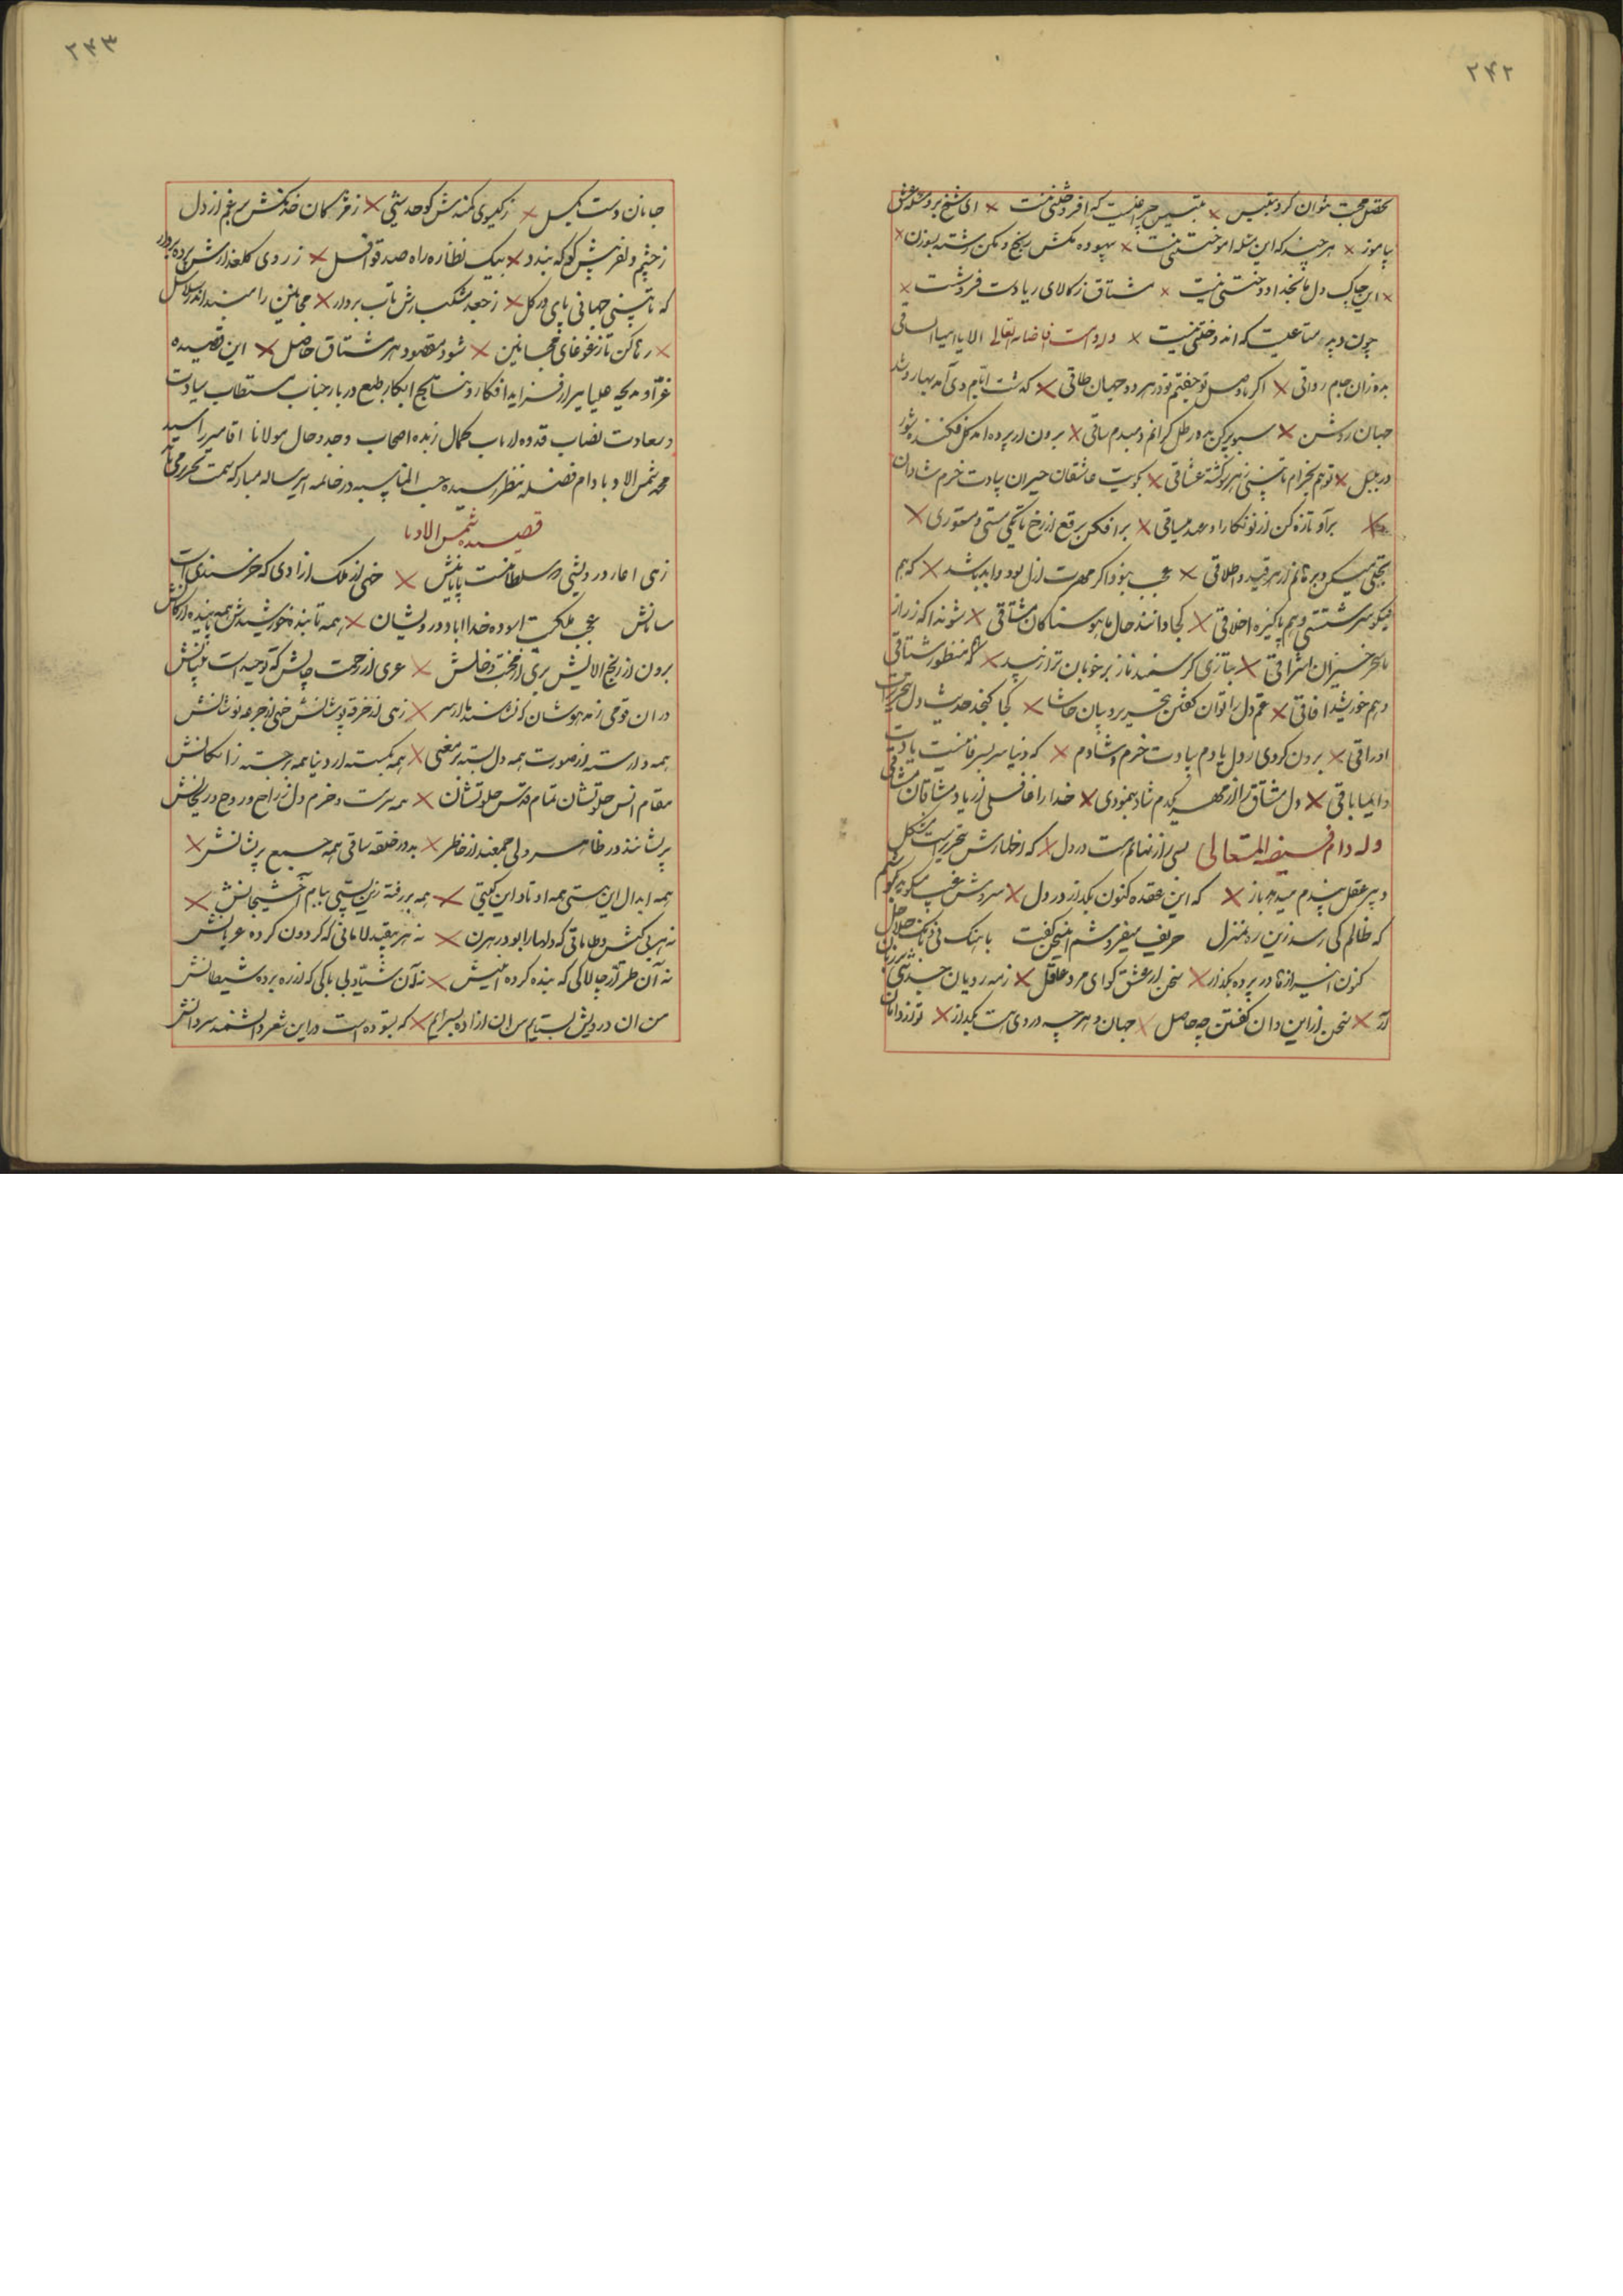 ۲۴۲
تحصیل محبت نتوان کرد بتلبیس × تلبیس چراغیست که افروختنی نیست × ای شیخ برو مسئله عشق
بیاموز × هر چند که این مسئله آموختنی نیست × بیهوده مکش رنج و مکن رشته بسوزن ×
× این چاک دل ما بخدا دوختنی نیست × مشتاق ز کالای ریا دست فروشست ×
چون دید متاعیست که اندوختنی نیست × وله دامت افاضاته العالی الا یا ایها الساقی
بده زان جام رواقی × اگر با وصل تو جفتم تو در هر دو جهان طاقی × گذشت ایام دی آمد بهار و شد
جهان روشن × سبو پر کن بده رطل گرانم دمبدم ساقی × برون از پرده آمد گل فکنده شور
در بلبل × تو هم بخرام تا بینی بهر گوشه عشاقی × بکویت عاشقان حیران بیادت خرم و شادان
× برآ و تازه کن از نو نگارا عهد میثاقی × برافکن برقع از رخ تا بکی مستی و مستوری ×
تجلی میکن و برهانم از هر قید و اطلاقی × عجب نبود اگر مهرت ازل بود و ابد باشد × که هم
نیکو سرشتستی و هم پاکیزه اخلاقی × کجا دانند حال ما هوسناکان مشتاقی × شوند آگه ز راز
ما سحر خیزان اشراقی × بنازی گر کسند ناز بر خوبان ترا زیبد × که منظور مشتاقی
و هم خورشید آفاقی × غم دل را توان گفتن بتحریر و بیان حاشا × کجا گنجد حدیث دل بتحریرات
اوراقی × برون کردی ز دل یادم بیادت خرم و شادم × که دنیا سربسر فانیست یادت
دایما باقی × دل مشتاق را از مهر یکدم شاد ننمودی × خدا را غافلی از یاد مشتاقان مشتاقی
وله دام فیضه المتعالی بسی راز نهانم هست در دل × که اظهارش بتحریر است مشکل
و پیر عقل پندم میدهد باز × که این عقده کنون بگذار در دل × سروش غیب میگوید بگوشم
که ظالم کی رسد زین ره بمنزل حریف میفروشم این سخن گفت بآهنگ نی و بانگ جلاجل
کنون این راز را در پرده بگذار × سخن از عشق گو ای مرد عاقل × ز مه رویان حدیثی بر زبان
آر × سخن از این و آن گفتن چه حاصل × جهان و هر چه در وی هست بگذار × تو از دامان
۲۴۳
جانان دست مگسل × ز گیسوی کمندش گو حدیثی × ز مژگان خدنگش بر غم از دل
ز چشم دلفریبش گو که بندد × بیک نظاره راه صد قوافل × ز روی گلعذارش پرده بردار
که تا بینی جهانی پای در گل × ز جعد مشکبارش تاب بردار × مجانین را مبند اندر سلاسل
× رها کن تا ز غوغای مجانین × شود مقصود هر مشتاق حاصل × این قصیده
غرّا و مدیحه علیا
و سعادت نصاب قدوه ارباب کمال زبده اصحاب وجد و حال مولانا آقا میرزا سید
محمد شمس الادبا دام فضله بنظر رسیده حسب المناسبه در خاتمه این رساله مبارکه سمت تحریر می‌یابد
قصیده شمس الادبا
زهی آغاز درویشی که سلطانیست پایانش × خهی از ملک آزادی که خرسندی است
سامانش عجب ملکیست آسوده خدا آباد درویشان × همه تابنده خورشیدش همه پاینده ارکانش
برون از رنج آلایش بری از محنت و خلش × عری از زحمت چالش که توحید است بنیانش
در آن قومی ز مدهوشان که نشناسند پا از سر × زهی از خرقه پوشانش خهی از جرعه نوشانش
همه وارسته از صورت همه دل بسته بر معنی × همه بگسسته از دنیا همه برجسته ز امکانش
مقام انس جلوتشان تمام قدس خلوتشان × همه سرمست و خرم دل ز راح و روح و ریحانش
پریشانند در ظاهر ولی جمعند از خاطر × بدور حلقه ساقی همه جمع پریشانش ×
همه ابدال این هستی همه اوتاد این گیتی × همه بر رفته زین پستی ببام آخشیجانش ×
نه هر بی‌کیش و طاماتی که دلها را بود رهزن × نه هر بیقید لاماتی که گردون کرده عریانش
نه آن طرّار چالاکی که بنده کرده ابلیسش × نه آن شیّاد بی‌باکی که از ره برده شیطانش
من آن درویش بستایم من آن آزاده بسرایم × که بستوده است در این شعر دانشمند سردانش